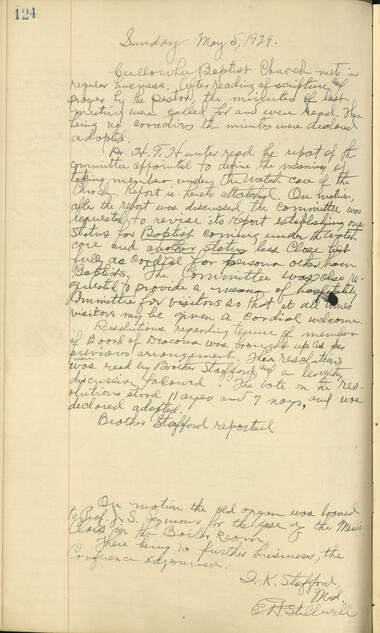 124
Sunday May 5, 1929.
Cullowhee Baptist Church met in
regular business. After reading of scripture and
prayer by the Pastor, the minutes of last
meeting were called for and were read. There
being no corrections the minutes were declared
adopted.
Dr. H. T. Hunter read the report of the
committee appointed to define the meaning of
taking members under the Watch care of the
Church. Report is hereto attached. On motion,
after the report was discussed, the committee was
requested to revise its report establishing one
status for Baptist coming under the watch
care and another status less close yet
fully as cordial for persons other than
Baptists. The Committee was also re-
quested to provide a means of hospitality
Committee for visitors so that at all times
visitors may be given a cordial welcome.
Resolutions regarding tenure of members
of Board of Deacons was brought up as per
previous arrangement. These resolutions
was read by Brother Stafford and a lengthy
discussion followed. The vote on the res-
olutions stood 11 ayes and 7 nays, and was
declared adopted.
Brother Stafford reported
On motion the old organ was loaned
to Prof. J. S. Seymour for the use of the Men's
Class in the Boiler Room.
There being no further business, the
Conference adjourned.
T. K. Stafford,
Mod.
E H Stillwell